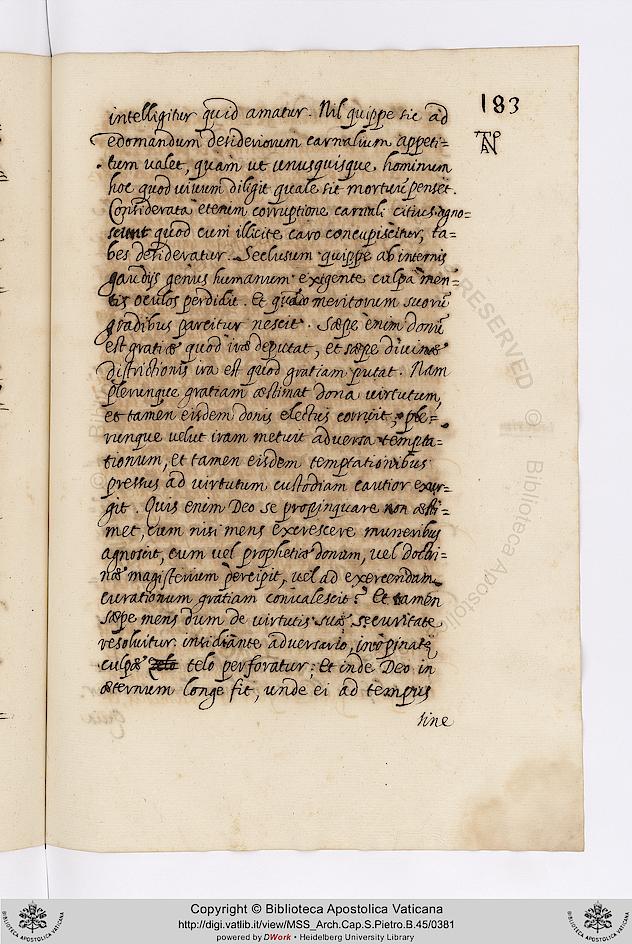 183
intelligitur quid amatur. Nil quippe sic ad
edomandum desideriorum carnalium appeti=
tum ualet, quam ut unusquisque hominum
hoc quod uiuum diligit quale sit mortuũ penset.
Considerata etenim corruptione carnali citius agno=
scitur quod cum illicite caro concupiscitur, ta=
bes desideratur. Seclusum quippe ab internis
gaudijs genus humanum exigente culpa men=
tis oculos perdidit. Et quib meritorum suorũ
gradibus pareitur nescit. Sæpe enim donũ
est gratiæ quod iræ deputat, et sæpe diuinæ
districtionis ira est quod gratiam putat. Nam
plerunque gratiam æstimat dona uirtutum,
et tamen eisdem donis electus corruit, ple=
runque uelut iram metuit aduersa tempta=
tionum, et tamen eisdem temptationibus
pressus ad uirtutum custodiam cautior exur=
git. Quis enim Deo se propinquare non æsti=
met, cum nisi mens excrescere muneribus
agnoscit, cum uel prophetiæ donum, uel doctri=
næ magisterium percipit, uel ad exercendam
curationum gratiam conualescit? Et tamen
sæpe mens dum de uirtutis suæ securitate
resoluitur insidiante aduersario, inopinatę
culpæ telo perforatur; Et inde Deo in
æternum longe fit, unde ei ad tempus
sine
RESERVED © Biblioteca Apostolica
Copyright © Biblioteca Apostolica Vaticana
http://digi.vatlib.it/view/MSS_Arch.Cap.S.Pietro.B.45/0381
powered by DWork • Heidelberg University Library